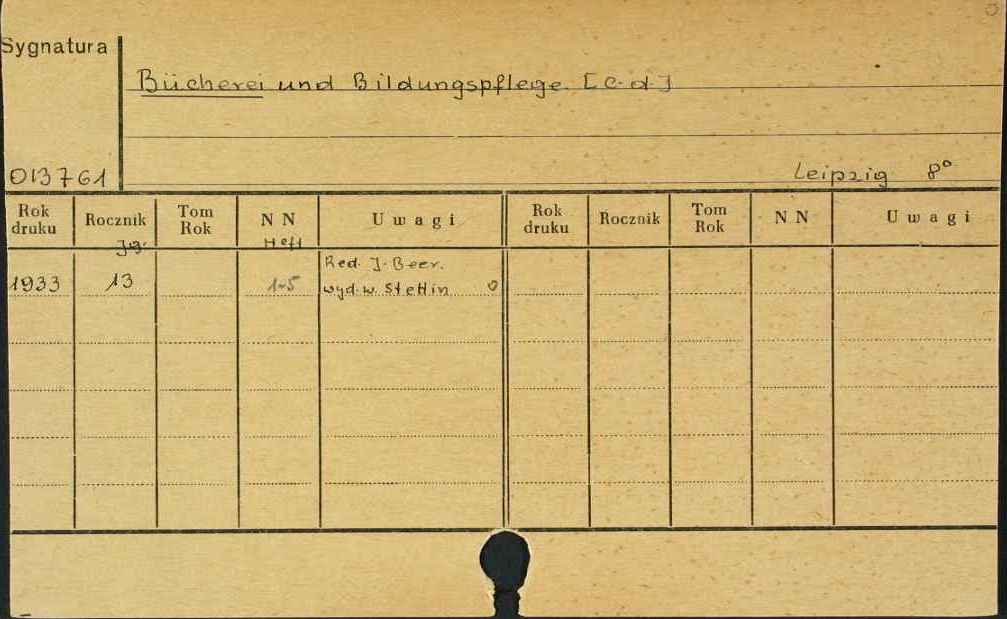 Sygnatura
Bücherei und Bildungspflege [C.d.]
013761
Leipzig 8°
Rok druku Rocznik Tom Rok NN Uwagi Rok druku Rocznik Tom Rok NN Uwagi
Jg. Heft
Red. J. Beer.
1933 13 1-5 wyd. w Stettin 0